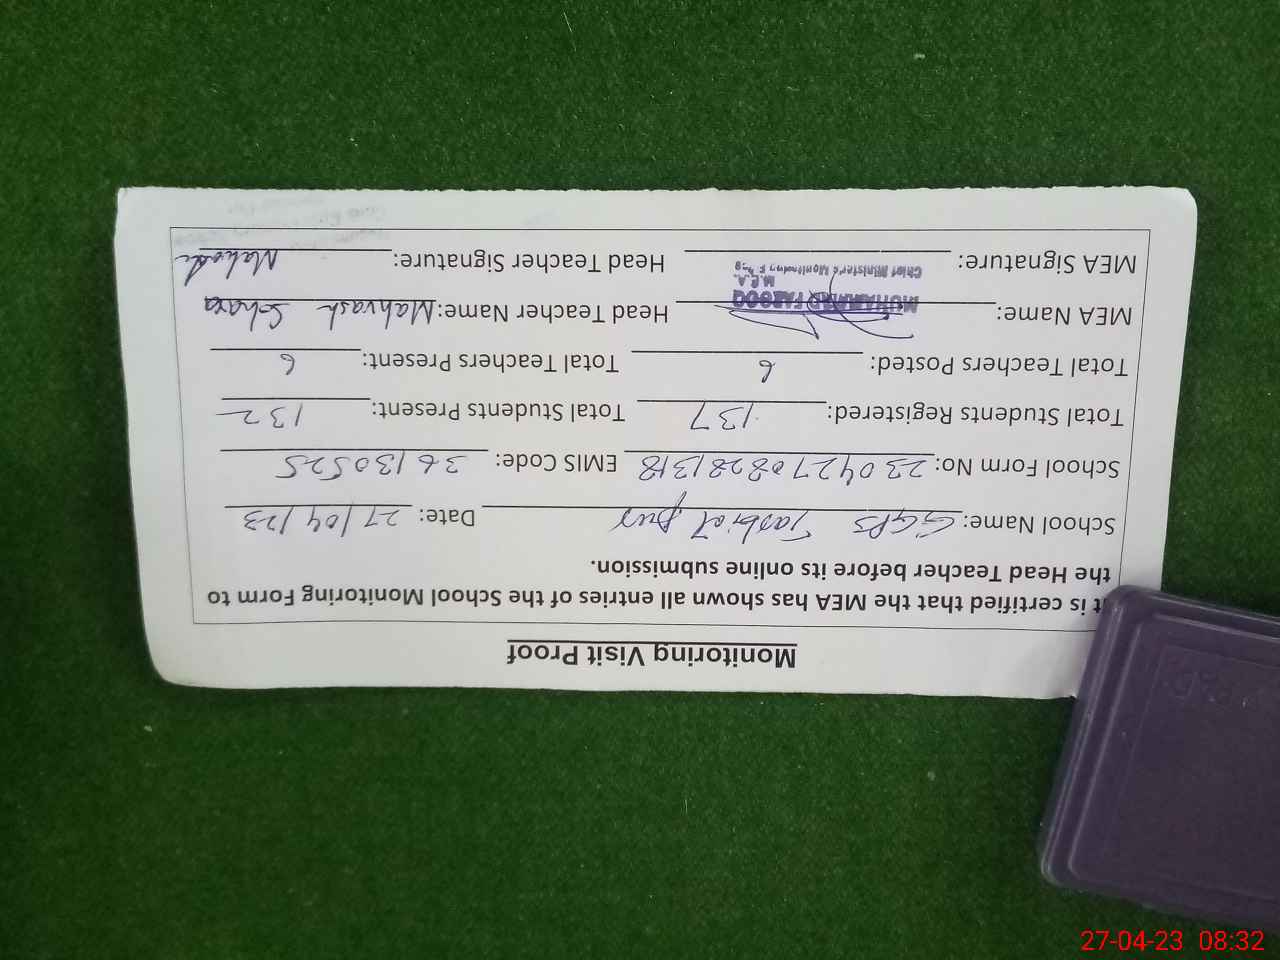 Monitoring Visit Proof
It is certified that the MEA has shown all entries of the School Monitoring Form to
the Head Teacher before its online submission.
School Name: GGPS Tasbiat pur Date: 27/04/23
School Form No: 23042708281318 EMIS Code: 36130525
Total Students Registered: 137 Total Students Present: 132
Total Teachers Posted: 6 Total Teachers Present: 6
MEA Name: MUHAMMAD FAROOQ Head Teacher Name: Mahvash
M.E.A.
Chief Minister's Monitoring F
MEA Signature: Head Teacher Signature:
27-04-23 08:32